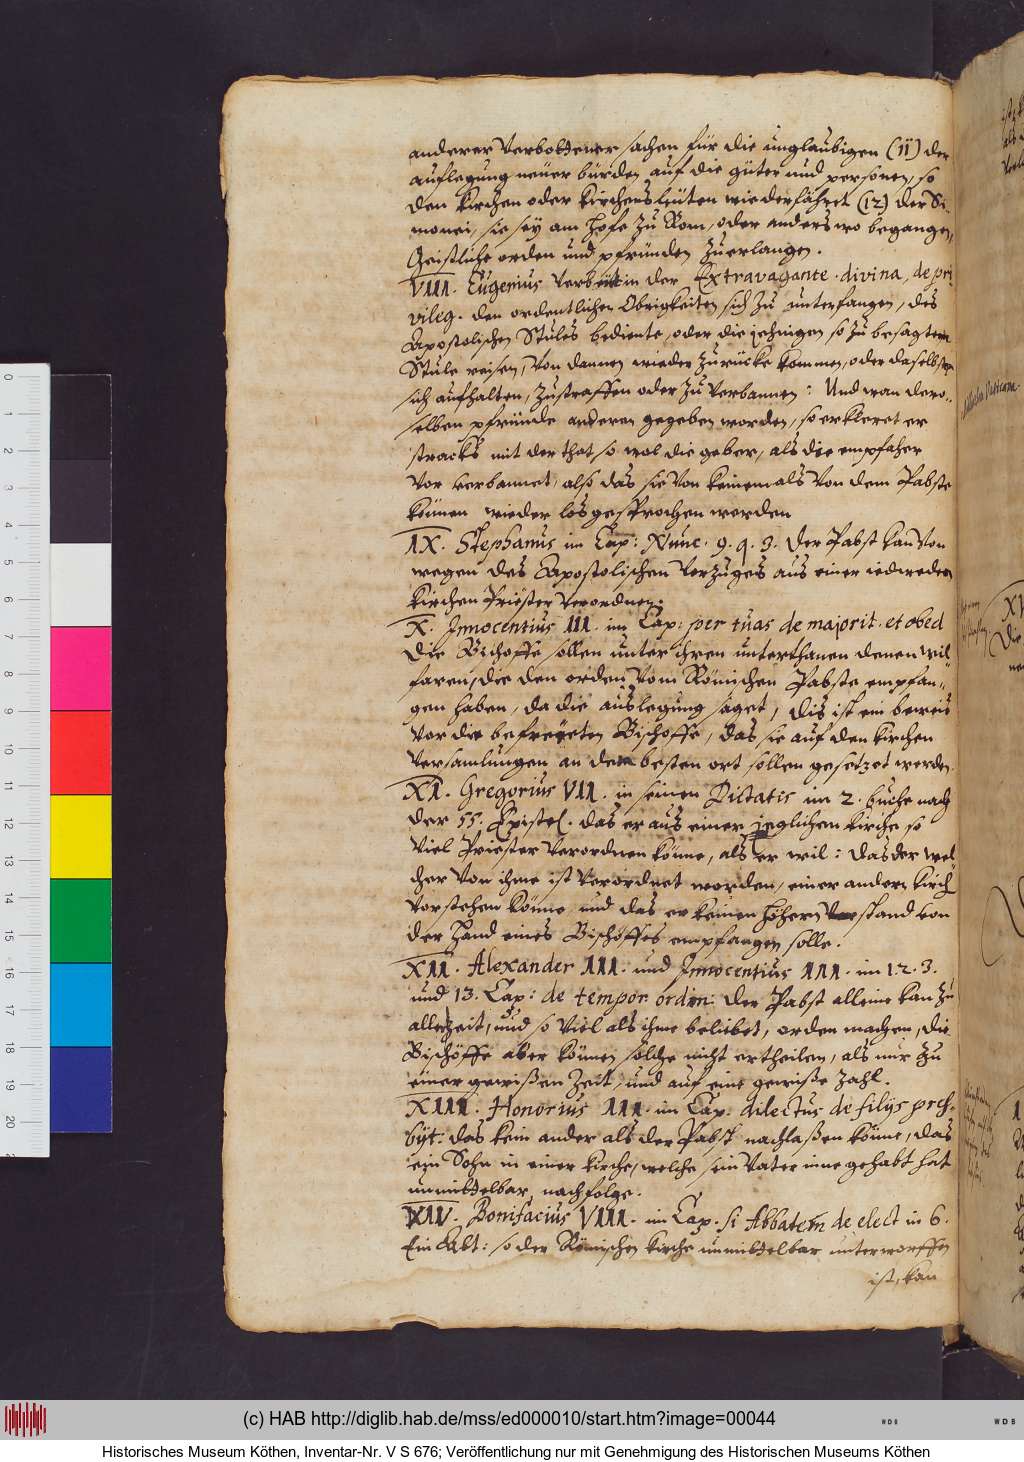 anderer verbottener sachen für die unglaubigen (11) der
auflegung neüer bürden auf die güter und personen, so
den Kirchen oder Kirchensleüten wiederfähret (12) der Si-
monei, sie seÿ am Hofe zu Rom, oder anderswo begangen,
Geistliche orden und pfründen zuerlangen.
VIII. Eugenius verbeüt in der Extravagante. divina, de pri
vileg. den ordentlichen Obrigkeiten sich zu unterfangen, des
Apostolischen Stules bediente, oder die jehnigen so zu besagtem
Stule reisen, von dannen wieder zurücke kommen, oder daselbsten
sich aufhalten, zustraffen oder zu verbannen: Und wan dero-
selben pfründe anderen gegeben worden, so erkleret er
stracks mit der that so wol die geber, als die empfaher
vor verbannet, also das sie von keinem als von dem Pabste
können wieder losgesprochen werden
IX. Stephanus im Cap: Nunc. 9. q. 3. Der Pabst kan von
wegen des Apostolischen vorzuges aus einer iedweden
Kirchen Priester verordnen.
X. Innocentius III. im Cap: per tuas de majorit. et obed
Die Bischoffe sollen unter ihren unterthanen denen wil
faren, die den orden vom Römischen Pabste empfan-
gen haben, da die auslegung saget, dis ist ein beweis
vor die befreÿeten Bischoffe, das sie auf den kirchen
versamlungen an dem besten ort sollen gesetzet werden.
XI. Gregorius VII. in seinen Dictatis im 2. buche nach
der 55. Epistel. das er aus einer jeglichen kirche so
viel Priester verordnen könne, als er wil: das der wel
cher von ihme ist verordnet worden, einer andern kirch
vorstehen könne und das er keinen höhern verstand von
der Hand eines Bischoffes empfangen solle.
XII. Alexander III. und Innocentius III. im 1. 2. 3.
und 13. Cap: de tempor. ordin: Der Pabst alleine kan zu
allerzeit, und so viel als ihme beliebet, orden machen, die
Bischöffe aber können solche nicht ertheilen, als nur zu
einer gewißen Zeit, und auf eine gewiße zahl.
XIII. Honorius III. im Cap. dilectus de filijs presb-
bÿt: das kein ander als der Pabst nachlaßen könne, das
ein Sohn in einer kirche, welche sein Vater inne gehabt hat
unmittelbar nachfolge.
XIV. Bonifacius VIII. im Cap. si Abbatem de elect in 6.
Ein Abt: so der Römischen kirche unmittelbar unterworffen
ist, kan
(c) HAB http://diglib.hab.de/mss/ed000010/start.htm?image=00044
Historisches Museum Köthen, Inventar-Nr. V S 676; Veröffentlichung nur mit Genehmigung des Historischen Museums Köthen